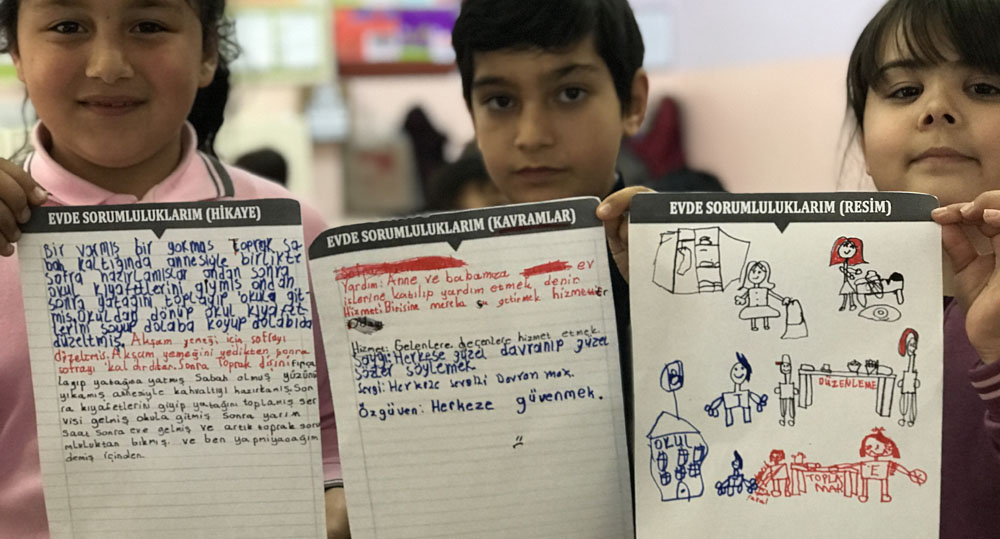 EVDE SORUMLULUKLARIM (HİKAYE)
Bir varmış bir yokmuş Toprak sa
bah kalktığında annesiyle birlikte
sofra hazırlamışlar ondan sonra
okul kıyafetlerini giymiş ondan
sonra yatağını toplayıp okula git
miş.Okuldan dönüp okul kıyafet
lerini soyup dolaba koyup dolabıda
düzeltmiş. Akşam yemeği için sofrayı
düzeltmiş. Akşam yemeğini yedikten sonra
sofrayı kaldırdılar. Sonra Toprak dişini fırça
layıp yatağına yatmış Sabah olmuş yüzünü
yıkamış annesiyle kahvaltıyı hazırlamış Son
ra kıyafetlerini giyip yatağını toplamış ser
visi gelmiş okula gitmiş sonra yarım
saat sonra eve gelmiş ve artık toprak soru
mluluktan bıkmış ve ben yapmıyacağım
demiş içinden.
EVDE SORUMLULUKLARIM (KAVRAMLAR)
Yardım: Anne ve babamıza ev
işlerine katılıp yardım etmek denir
Hizmet: Birisine getirmek hizmet
Hizmet: Gelenlere, geçenlere hizmet etmek.
Saygı: Herkese güzel davranıp güzel
sözler söylemek
Sevgi: Herkeze sevgili
Özgüven: Herkeze güvenmek.
EVDE SORUMLULUKLARIM (RESİM)
DÜZENLEME
OKUL
E
TOPLA
MAK